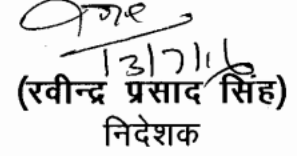 13/7/16
(रवीन्द्र प्रसाद सिंह)
निदेशक